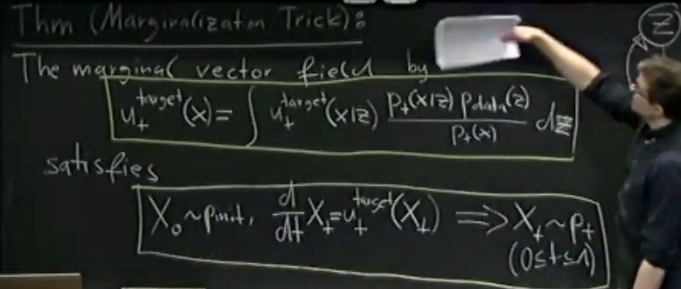 Thm (Marginalization Trick):
The marginal vector field by
u_t^target(x) = ∫ u_t^target(x|z) p_t(x|z) p_data(z) / p_t(x) dz
satisfies
X_0 ~ p_init, d/dt X_t = u_t^target(X_t) ⟹ X_t ~ p_t
(0≤t≤1)
z